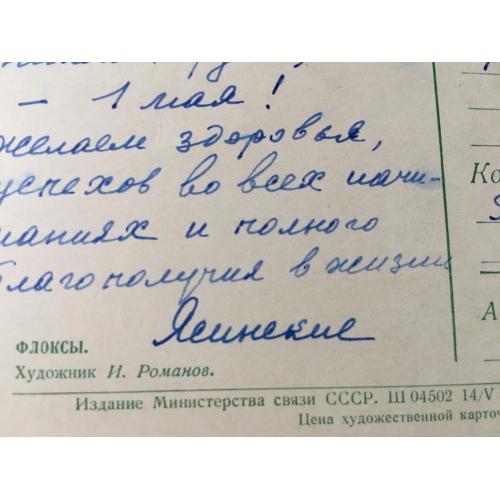 — 1 мая!
желаем здоровья,
успехов во всех начи-
наниях и полного
благополучия в жизни
Ясинские
Ко
А
ФЛОКСЫ.
Художник И. Романов.
Издание Министерства связи СССР. Ш 04502 14/V
Цена художественной карточ